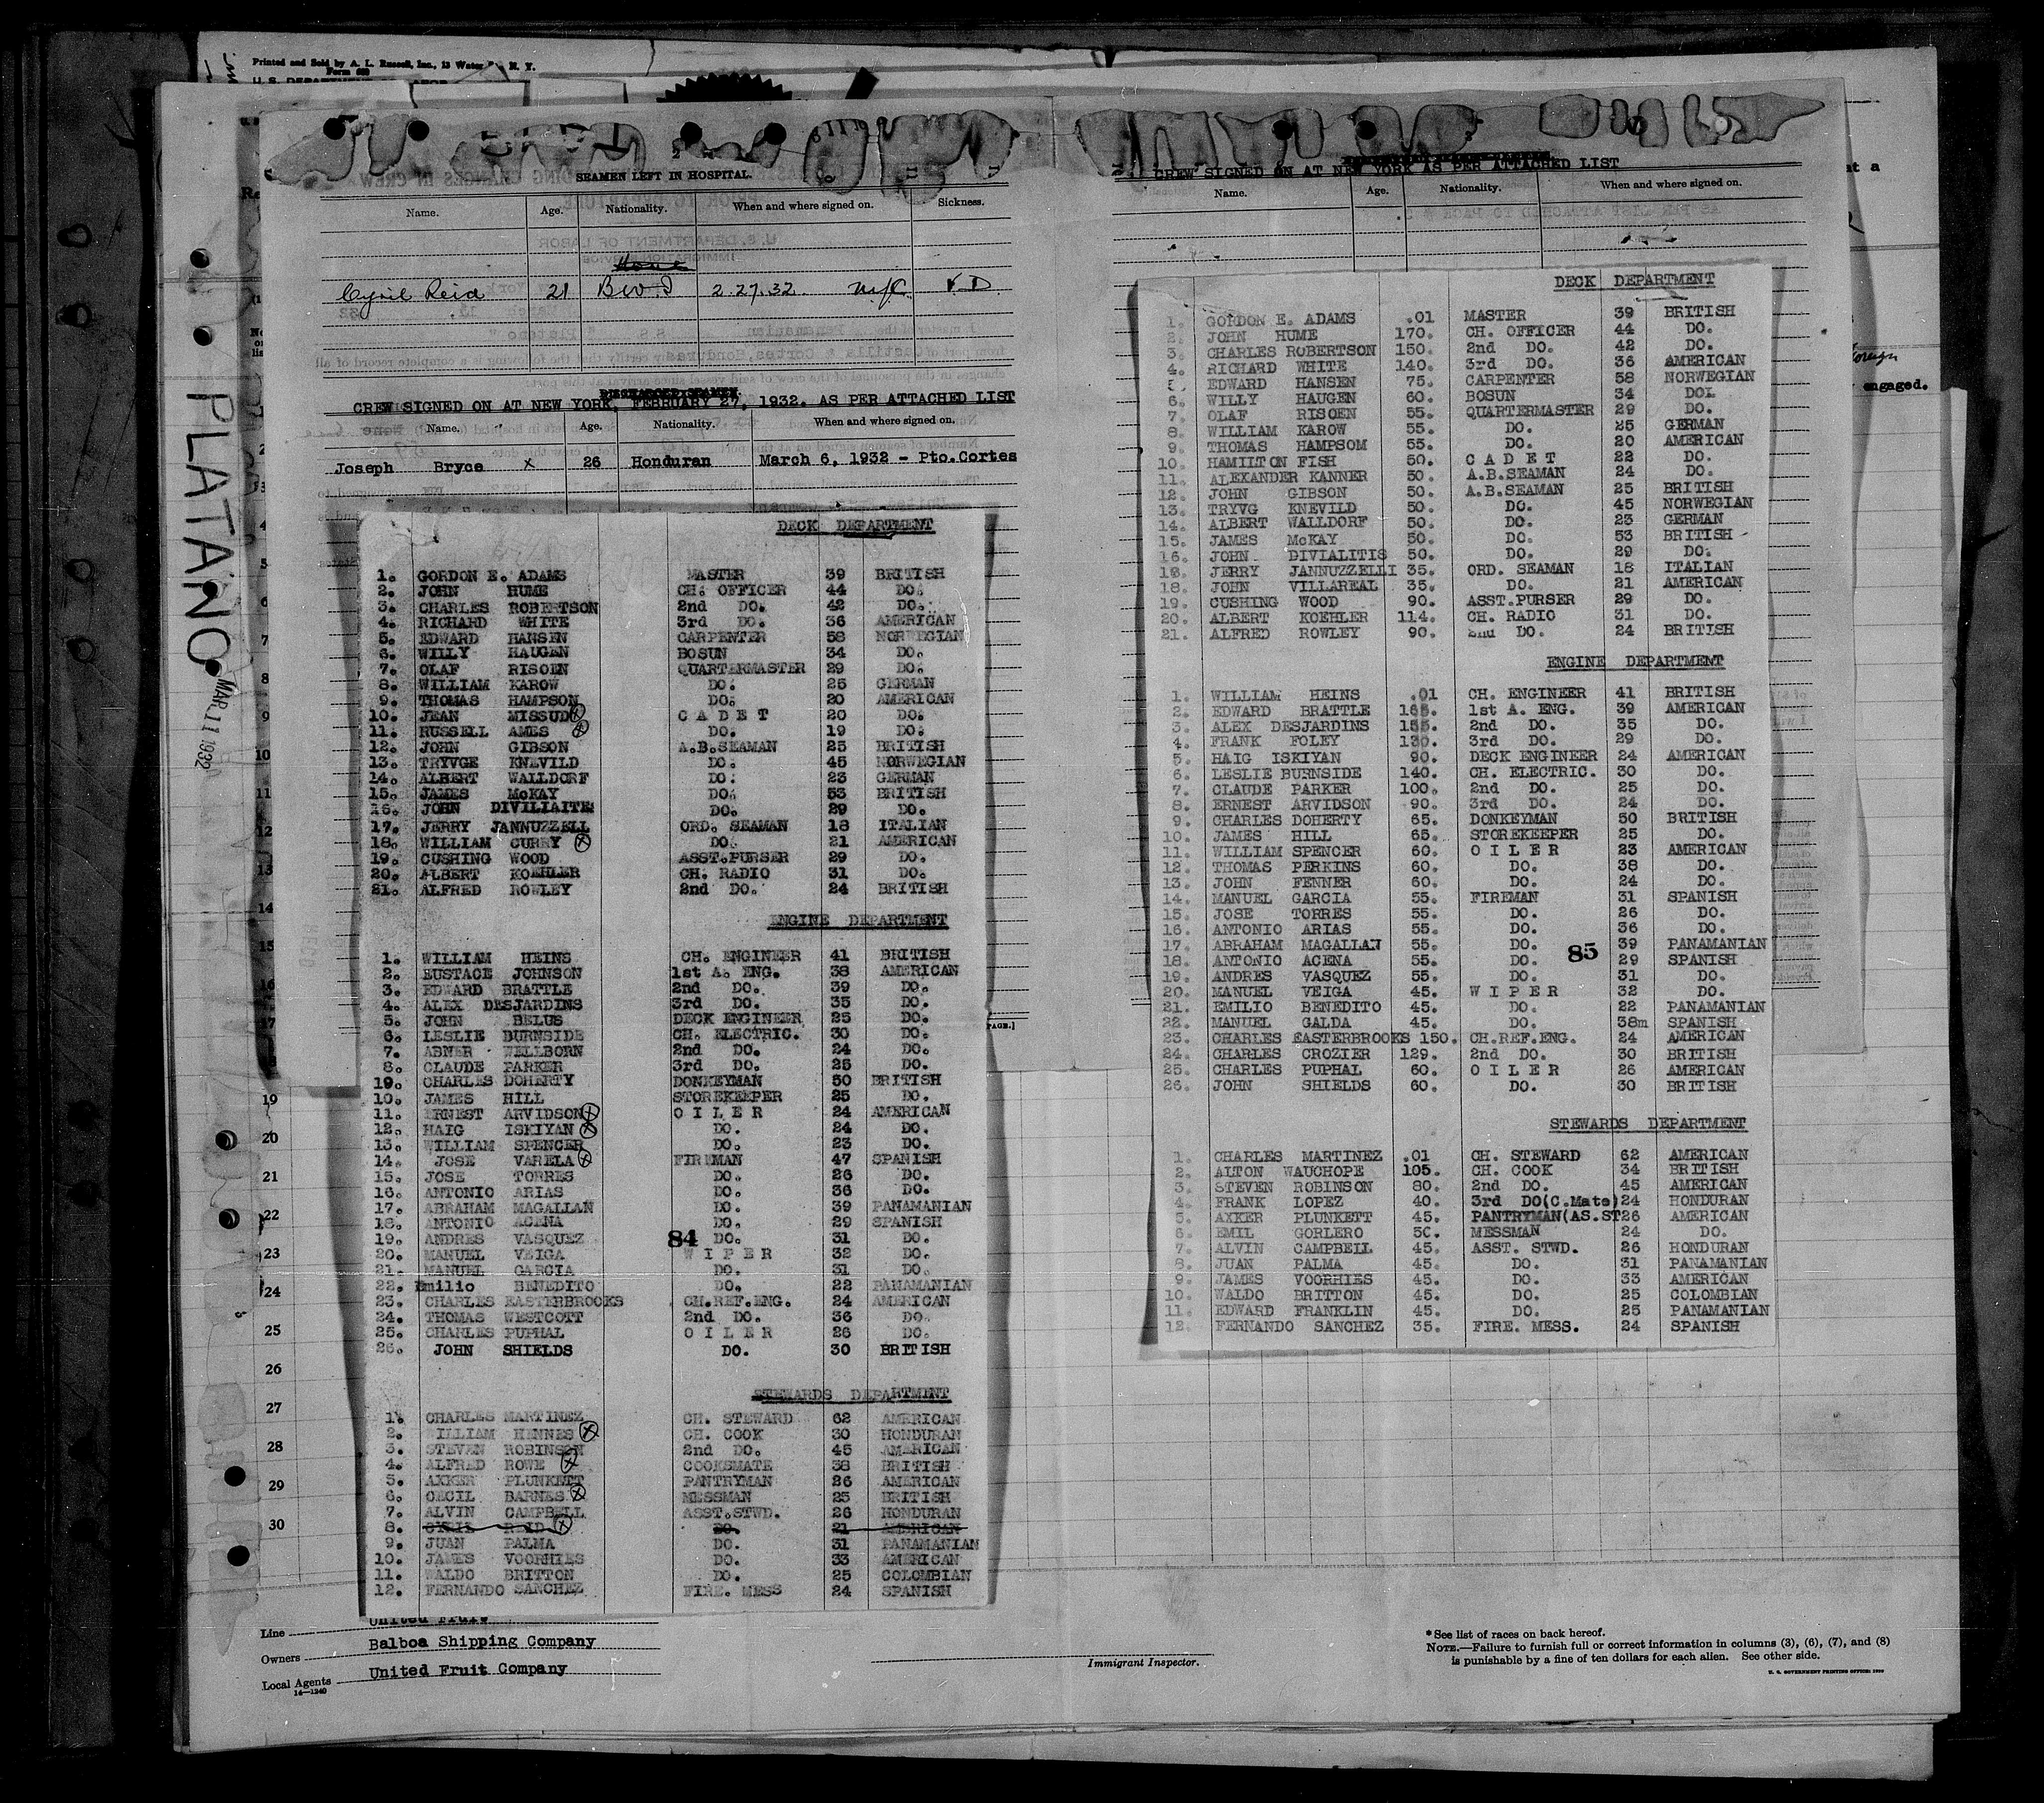 Printed and Sold by A. L. Russell, Inc., 13 Water N. Y.
Form 689
PLATANO
MAR 11 1932
SEAMEN LEFT IN HOSPITAL.
Name. Age. Nationality. When and where signed on. Sickness.
None
Cyril Reid 21 B.W.I 2.27.32. V.D
CREW SIGNED ON AT NEW YORK, FEBRUARY 27, 1932. AS PER ATTACHED LIST
Name. Age. Nationality. When and where signed on.
Joseph Bryce x 26 Honduran March 6, 1932 - Pto.Cortes
DECK DEPARTMENT
1. GORDON E. ADAMS MASTER 39 BRITISH
2. JOHN HUME CH. OFFICER 44 DO.
3. CHARLES ROBERTSON 2nd DO. 42 DO.
4. RICHARD WHITE 3rd DO. 36 AMERICAN
5. EDWARD HANSEN CARPENTER 58 NORWEGIAN
6. WILLY HAUGEN BOSUN 34 DO.
7. OLAF RISOEN QUARTERMASTER 29 DO.
8. WILLIAM KAROW DO. 25 GERMAN
9. THOMAS HAMPSON DO. 20 AMERICAN
10. JEAN MISSUD X CADET 20 DO.
11. RUSSELL AMES X DO. 19 DO.
12. JOHN GIBSON A.B.SEAMAN 25 BRITISH
13. TRYVGE KNEVILD DO. 45 NORWEGIAN
14. ALBERT WALLDORF DO. 23 GERMAN
15. JAMES McKAY DO. 53 BRITISH
16. JOHN DIVILIAITE DO. 29 DO.
17. JERRY JANNUZZELL ORD. SEAMAN 18 ITALIAN
18. WILLIAM CURRY X DO. 21 AMERICAN
19. CUSHING WOOD ASST.PURSER 29 DO.
20. ALBERT KOEHLER CH. RADIO 31 DO.
21. ALFRED ROWLEY 2nd DO. 24 BRITISH
ENGINE DEPARTMENT
1. WILLIAM HEINS CH. ENGINEER 41 BRITISH
2. EUSTACE JOHNSON 1st A. ENG. 38 AMERICAN
3. EDWARD BRATTLE 2nd DO. 39 DO.
4. ALEX DESJARDINS 3rd DO. 35 DO.
5. JOHN BELUS DECK ENGINEER 25 DO.
6. LESLIE BURNSIDE CH. ELECTRIC. 30 DO.
7. ABNER WELLBORN 2nd DO. 24 DO.
8. CLAUDE PARKER 3rd DO. 25 DO.
19. CHARLES DOHERTY DONKEYMAN 50 BRITISH
10. JAMES HILL STOREKEEPER 25 DO.
11. ERNEST ARVIDSON X OILER 24 AMERICAN
12. HAIG ISKIYAN X DO. 24 DO.
13. WILLIAM SPENCER DO. 23 DO.
14. JOSE VARELA X FIREMAN 47 SPANISH
15. JOSE TORRES DO. 26 DO.
16. ANTONIO ARIAS DO. 36 DO.
17. ABRAHAM MAGALLAN DO. 39 PANAMANIAN
18. ANTONIO ACENA DO. 29 SPANISH
19. ANDRES VASQUEZ 84 DO. 31 DO.
20. MANUEL VEIGA WIPER 32 DO.
21. MANUEL GARCIA DO. 31 DO.
22. Emilio BENEDITO DO. 22 PANAMANIAN
23. CHARLES EASTERBROOKS CH.REF.ENG. 24 AMERICAN
24. THOMAS WESTCOTT 2nd DO. 36 DO.
25. CHARLES PUPHAL OILER 26 DO.
26. JOHN SHIELDS DO. 30 BRITISH
STEWARDS DEPARTMENT
1. CHARLES MARTINEZ CH. STEWARD 62 AMERICAN
2. WILLIAM HENNES X CH. COOK 30 HONDURAN
3. STEVEN ROBINSON 2nd DO. 45 AMERICAN
4. ALFRED ROWE X COOKSMATE 38 BRITISH
5. AXKER PLUNKETT PANTRYMAN 26 AMERICAN
6. CECIL BARNES X MESSMAN 25 BRITISH
7. ALVIN CAMPBELL ASST.STWD. 26 HONDURAN
8. X DO. 21 AMERICAN
9. JUAN PALMA DO. 31 PANAMANIAN
10. JAMES VOORHIES DO. 33 AMERICAN
11. WALDO BRITTON DO. 25 COLOMBIAN
12. FERNANDO SANCHEZ FIRE. MESS 24 SPANISH
Line United Fruit
Owners Balboa Shipping Company
Local Agents United Fruit Company
14-1240
CREW SIGNED ON AT NEW YORK AS PER ATTACHED LIST
Name. Age. Nationality. When and where signed on.
DECK DEPARTMENT
1. GORDON E. ADAMS .01 MASTER 39 BRITISH
2. JOHN HUME 170. CH. OFFICER 44 DO.
3. CHARLES ROBERTSON 150. 2nd DO. 42 DO.
4. RICHARD WHITE 140. 3rd DO. 36 AMERICAN
5. EDWARD HANSEN 75. CARPENTER 58 NORWEGIAN
6. WILLY HAUGEN 60. BOSUN 34 DO.
7. OLAF RISOEN 55. QUARTERMASTER 29 DO.
8. WILLIAM KAROW 55. DO. 25 GERMAN
9. THOMAS HAMPSOM 55. DO. 20 AMERICAN
10. HAMILTON FISH 50. CADET 22 DO.
11. ALEXANDER KANNER 50. A.B.SEAMAN 24 DO.
12. JOHN GIBSON 50. A.B.SEAMAN 25 BRITISH
13. TRYVG KNEVILD 50. DO. 45 NORWEGIAN
14. ALBERT WALLDORF 50. DO. 23 GERMAN
15. JAMES McKAY 50. DO. 53 BRITISH
16. JOHN DIVIALITIS 50. DO. 29 DO.
18. JERRY JANNUZZELLI 35. ORD. SEAMAN 18 ITALIAN
18. JOHN VILLAREAL 35. DO. 21 AMERICAN
19. CUSHING WOOD 90. ASST.PURSER 29 DO.
20. ALBERT KOEHLER 114. CH. RADIO 31 DO.
21. ALFRED ROWLEY 90. 2nd DO. 24 BRITISH
ENGINE DEPARTMENT
1. WILLIAM HEINS .01 CH. ENGINEER 41 BRITISH
2. EDWARD BRATTLE 165. 1st A. ENG. 39 AMERICAN
3. ALEX DESJARDINS 155. 2nd DO. 35 DO.
4. FRANK FOLEY 130. 3rd DO. 29 DO.
5. HAIG ISKIYAN 90. DECK ENGINEER 24 AMERICAN
6. LESLIE BURNSIDE 140. CH. ELECTRIC. 30 DO.
7. CLAUDE PARKER 100. 2nd DO. 25 DO.
8. ERNEST ARVIDSON 90. 3rd DO. 24 DO.
9. CHARLES DOHERTY 65. DONKEYMAN 50 BRITISH
10. JAMES HILL 65. STOREKEEPER 25 DO.
11. WILLIAM SPENCER 60. OILER 23 AMERICAN
12. THOMAS PERKINS 60. DO. 38 DO.
13. JOHN FENNER 60. DO. 24 DO.
14. MANUEL GARCIA 55. FIREMAN 31 SPANISH
15. JOSE TORRES 55. DO. 26 DO.
16. ANTONIO ARIAS 55. DO. 36 DO.
17. ABRAHAM MAGALLAN 55. DO. 85 39 PANAMANIAN
18. ANTONIO ACENA 55. DO. 29 SPANISH
19. ANDRES VASQUEZ 55. DO. 31 DO.
20. MANUEL VEIGA 45. WIPER 32 DO.
21. EMILIO BENEDITO 45. DO. 22 PANAMANIAN
22. MANUEL GALDA 45. DO. 38m SPANISH
23. CHARLES EASTERBROOKS 150. CH.REF.ENG. 24 AMERICAN
24. CHARLES CROZIER 129. 2nd DO. 30 BRITISH
25. CHARLES PUPHAL 60. OILER 26 AMERICAN
26. JOHN SHIELDS 60. DO. 30 BRITISH
STEWARDS DEPARTMENT
1. CHARLES MARTINEZ .01 CH. STEWARD 62 AMERICAN
2. ALTON WAUCHOPE 105. CH. COOK 34 BRITISH
3. STEVEN ROBINSON 80. 2nd DO. 45 AMERICAN
4. FRANK LOPEZ 40. 3rd DO(C.Mate) 24 HONDURAN
5. AXKER PLUNKETT 45. PANTRYMAN(AS.ST 26 AMERICAN
6. EMIL GORLERO 50. MESSMAN 24 DO.
7. ALVIN CAMPBELL 45. ASST. STWD. 26 HONDURAN
8. JUAN PALMA 45. DO. 31 PANAMANIAN
9. JAMES VOORHIES 45. DO. 33 AMERICAN
10. WALDO BRITTON 45. DO. 25 COLOMBIAN
11. EDWARD FRANKLIN 45. DO. 25 PANAMANIAN
12. FERNANDO SANCHEZ 35. FIRE. MESS. 24 SPANISH
engaged.
Immigrant Inspector.
*See list of races on back hereof.
NOTE.—Failure to furnish full or correct information in columns (3), (6), (7), and (8)
is punishable by a fine of ten dollars for each alien. See other side.
U. S. GOVERNMENT PRINTING OFFICE: 1930